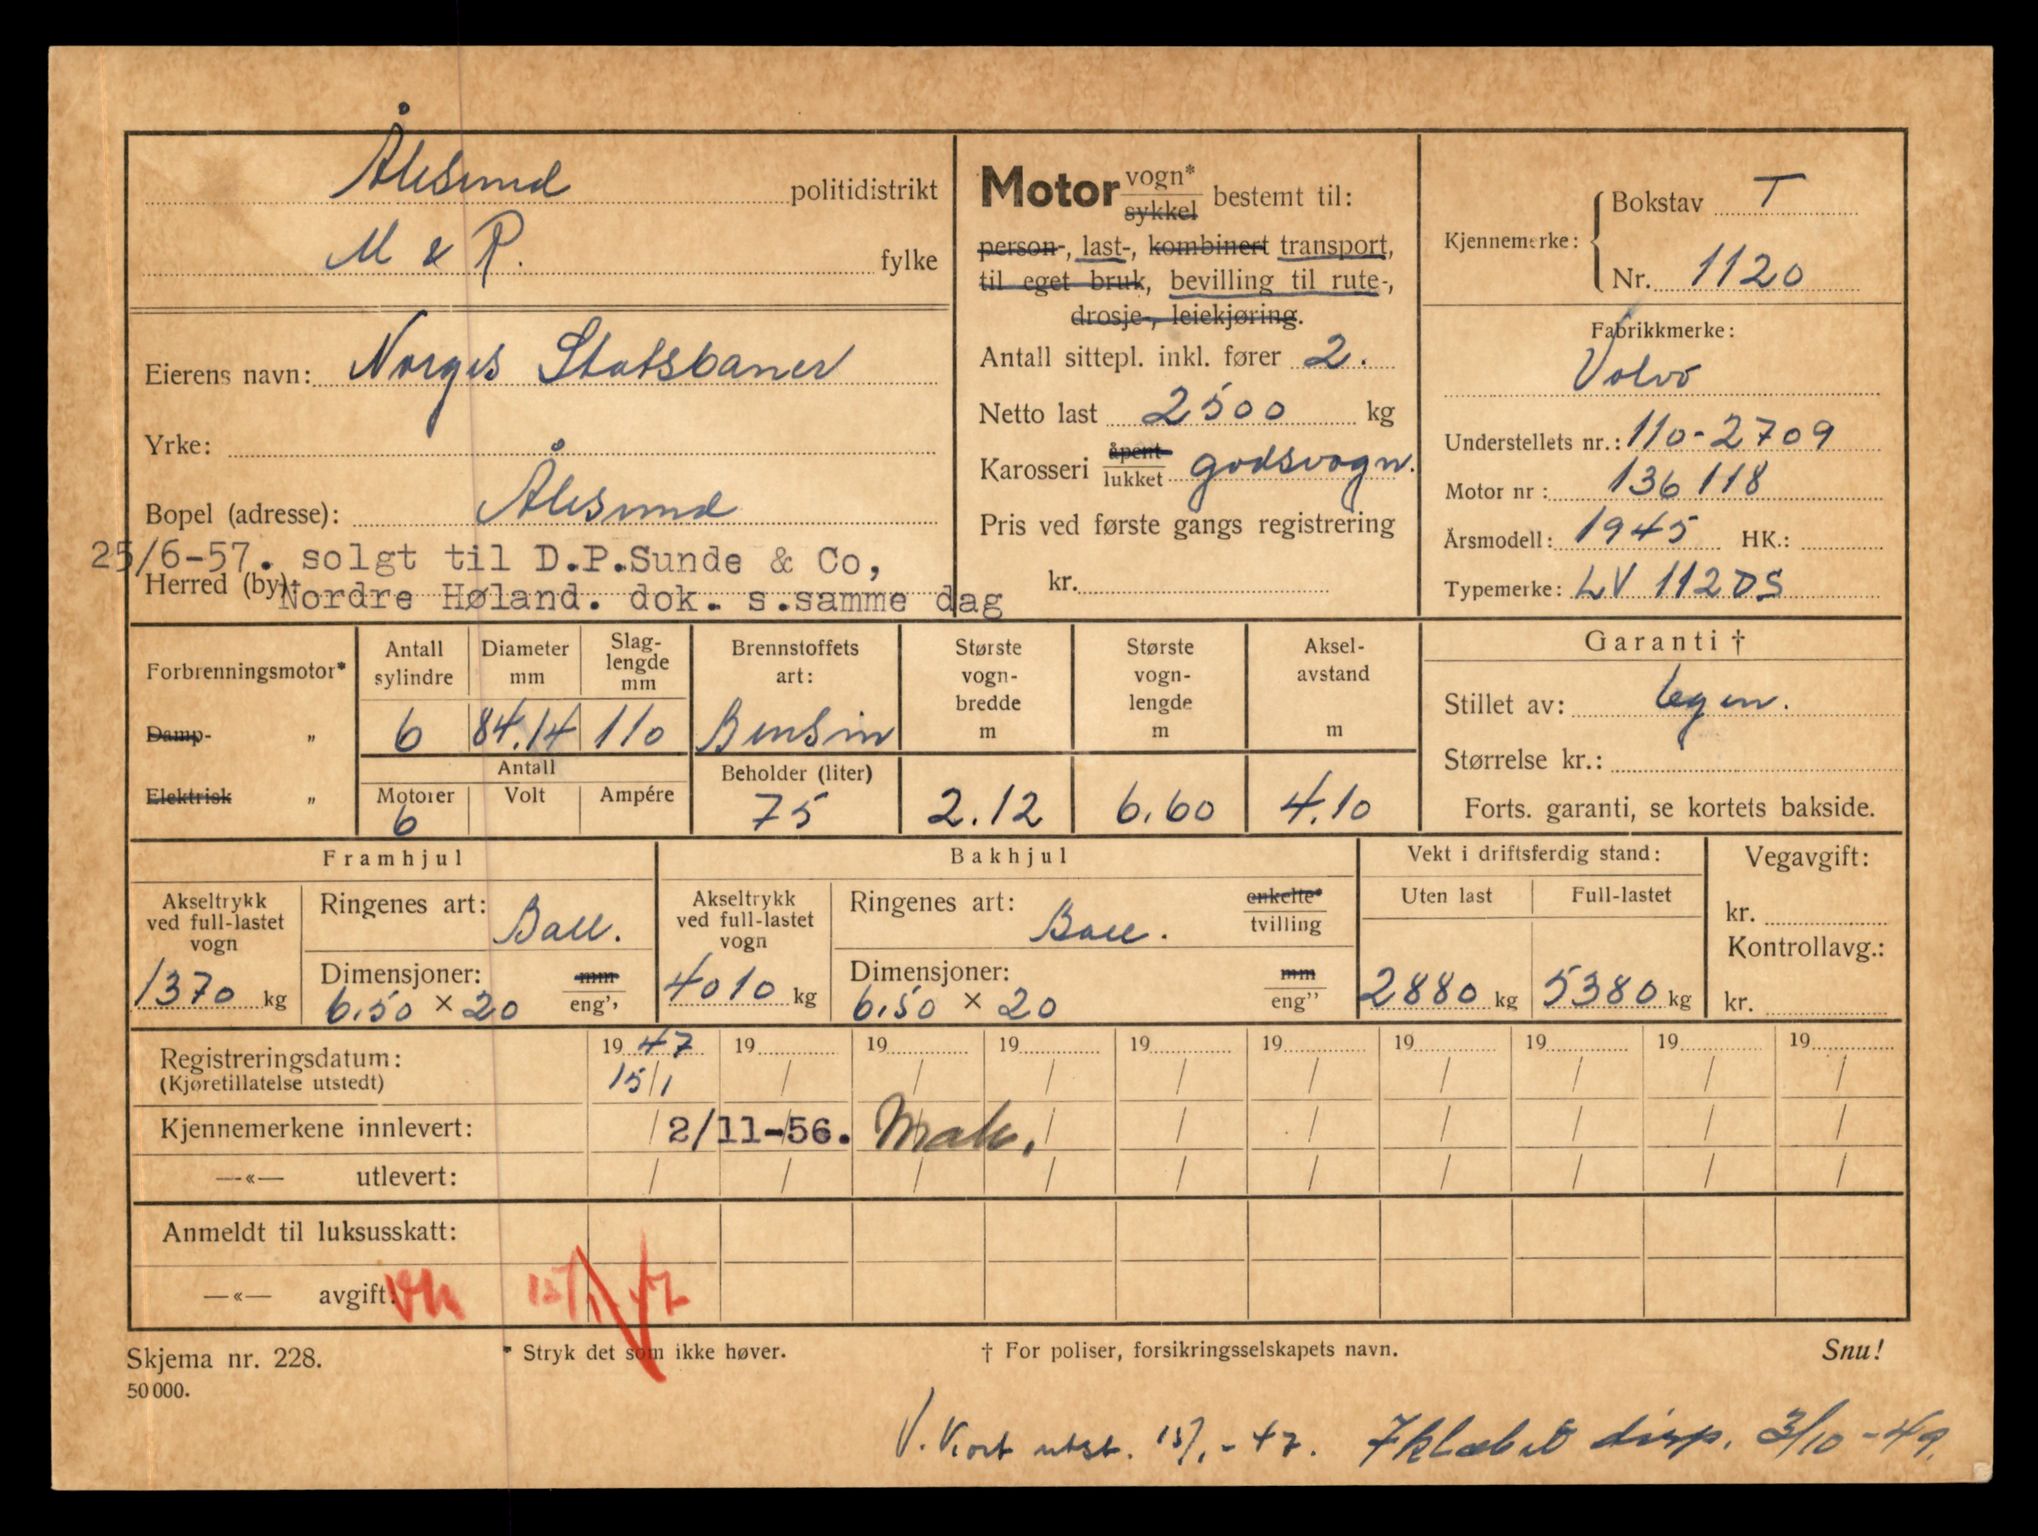 Ålesund politidistrikt
M & R. fylke
Eierens navn: Norges Statsbaner
Yrke:
Bopel (adresse): Ålesund
25/6-57. solgt til D.P.Sunde & Co,
Herred (by):
Nordre Høland. dok. s.samme dag
Motor vogn* sykkel bestemt til:
person-, last-, kombinert transport,
til eget bruk, bevilling til rute-,
drosje-, leiekjøring.
Antall sittepl. inkl. fører 2.
Netto last 2500 kg
Karosseri åpent lukket godsvogn.
Pris ved første gangs registrering
kr.
Kjennemerke: Bokstav T
Nr. 1120
Fabrikkmerke:
Volvo
Understellets nr.: 110-2709
Motor nr: 136118
Årsmodell: 1945 HK.:
Typemerke: LV 112 DS
Forbrenningsmotor*
Damp- „
Elektrisk „
Antall sylindre
6
Diameter mm
84.14
Slag-lengde mm
110
Antall
Motorer Volt Ampére
6
Brennstoffets art:
Bensin
Beholder (liter)
75
Største vogn-bredde m
2.12
Største vogn-lengde m
6.60
Aksel-avstand m
4.10
Garanti †
Stillet av: Egen.
Størrelse kr.:
Forts. garanti, se kortets bakside.
Framhjul
Akseltrykk ved full-lastet vogn
1370 kg
Ringenes art: Ball.
Dimensjoner: mm
6.50 × 20 eng''
Bakhjul
Akseltrykk ved full-lastet vogn
4010 kg
Ringenes art: Ball. enkelte* tvilling
Dimensjoner: mm
6.50 × 20 eng''
Vekt i driftsferdig stand:
Uten last Full-lastet
2880 kg 5380 kg
Vegavgift:
kr.
Kontrollavg.:
kr.
Registreringsdatum: 1947 19 19 19 19 19 19 19 19 19
(Kjøretillatelse utstedt) 15/1 / / / / / / / / /
Kjennemerkene innlevert: / 2/11-56. / / / / / / /
—«— utlevert: / / / / / / / / / /
Anmeldt til luksusskatt:
—«— avgift: 15/1 47
Skjema nr. 228. * Stryk det som ikke høver. † For poliser, forsikringsselskapets navn. Snu!
50 000.
V. Kort utst. 15/1-47. disp. 3/10-49.